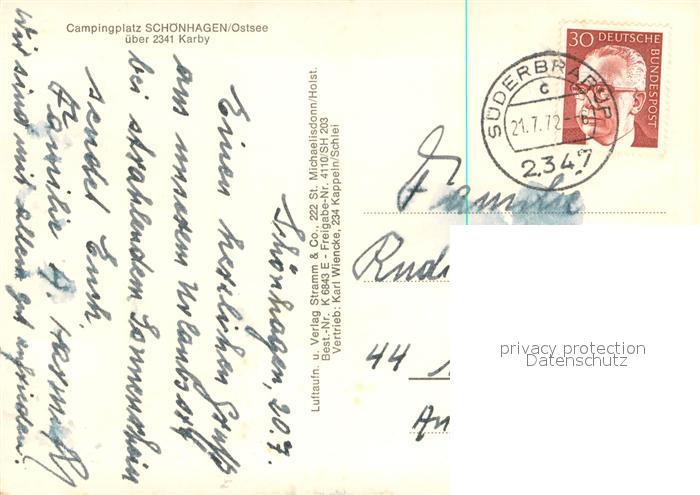 Campingplatz SCHÖNHAGEN/Ostsee
über 2341 Karby
Schönhagen, 20.7.
Einen herzlichen Gruß
aus unserem Urlaubsort
bei strahlendem Sonnenschein
sendet Euch
Familie H.
Wir sind mit allem gut zufrieden.
Luftaufn. u. Verlag Stramm & Co., 222 St. Michaelisdonn/Holst.
Best.-Nr. K 6843 E - Freigabe-Nr. 4110/SH 203
Vertrieb: Karl Wiencke, 234 Kappeln/Schlei
30 DEUTSCHE
BUNDESPOST
SÜDERBRARUP
c
21.7.72
2347
Familie
Rud
44
An
privacy protection
Datenschutz